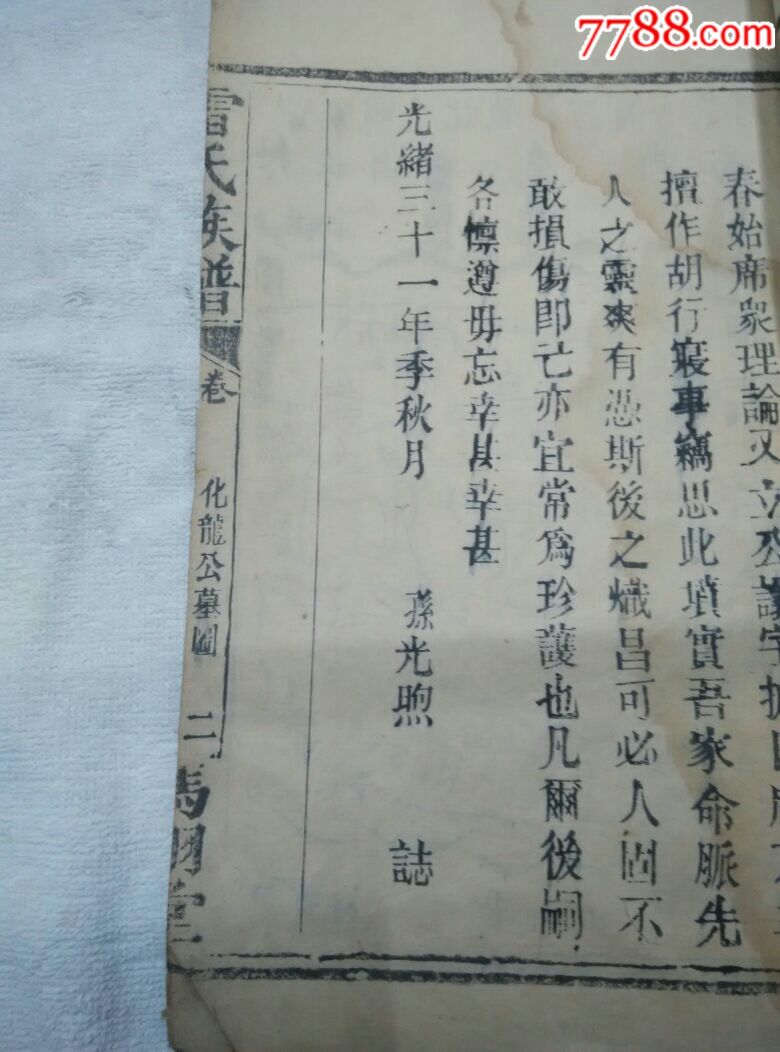 7788.com
春始席眾理論又立公議字
擅作胡行寢事竊思此墳實吾家命脈先
人之靈爽有憑斯後之熾昌可必人固不
敢損傷即亡亦宜常為珍護也凡爾後嗣
各懔遵毋忘幸甚幸甚
光緒三十一年季秋月 孫光煦 誌
雷氏族譜 卷 化龍公墓圖 二 堂